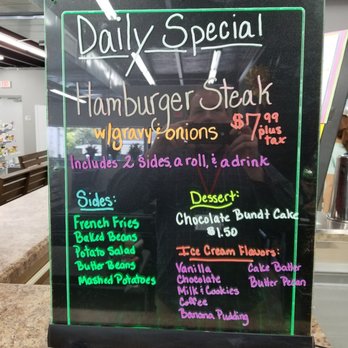 Daily Special
Hamburger Steak
w/gravy & onions
$7.99
plus
tax
Includes 2 sides, a roll, & a drink
Sides:
French Fries
Baked Beans
Potato Salad
Butter Beans
Mashed Potatoes
Dessert:
Chocolate Bundt Cake
$1.50
Ice Cream Flavors:
Vanilla
Chocolate
Milk & Cookies
Coffee
Banana Pudding
Cake Batter
Butter Pecan